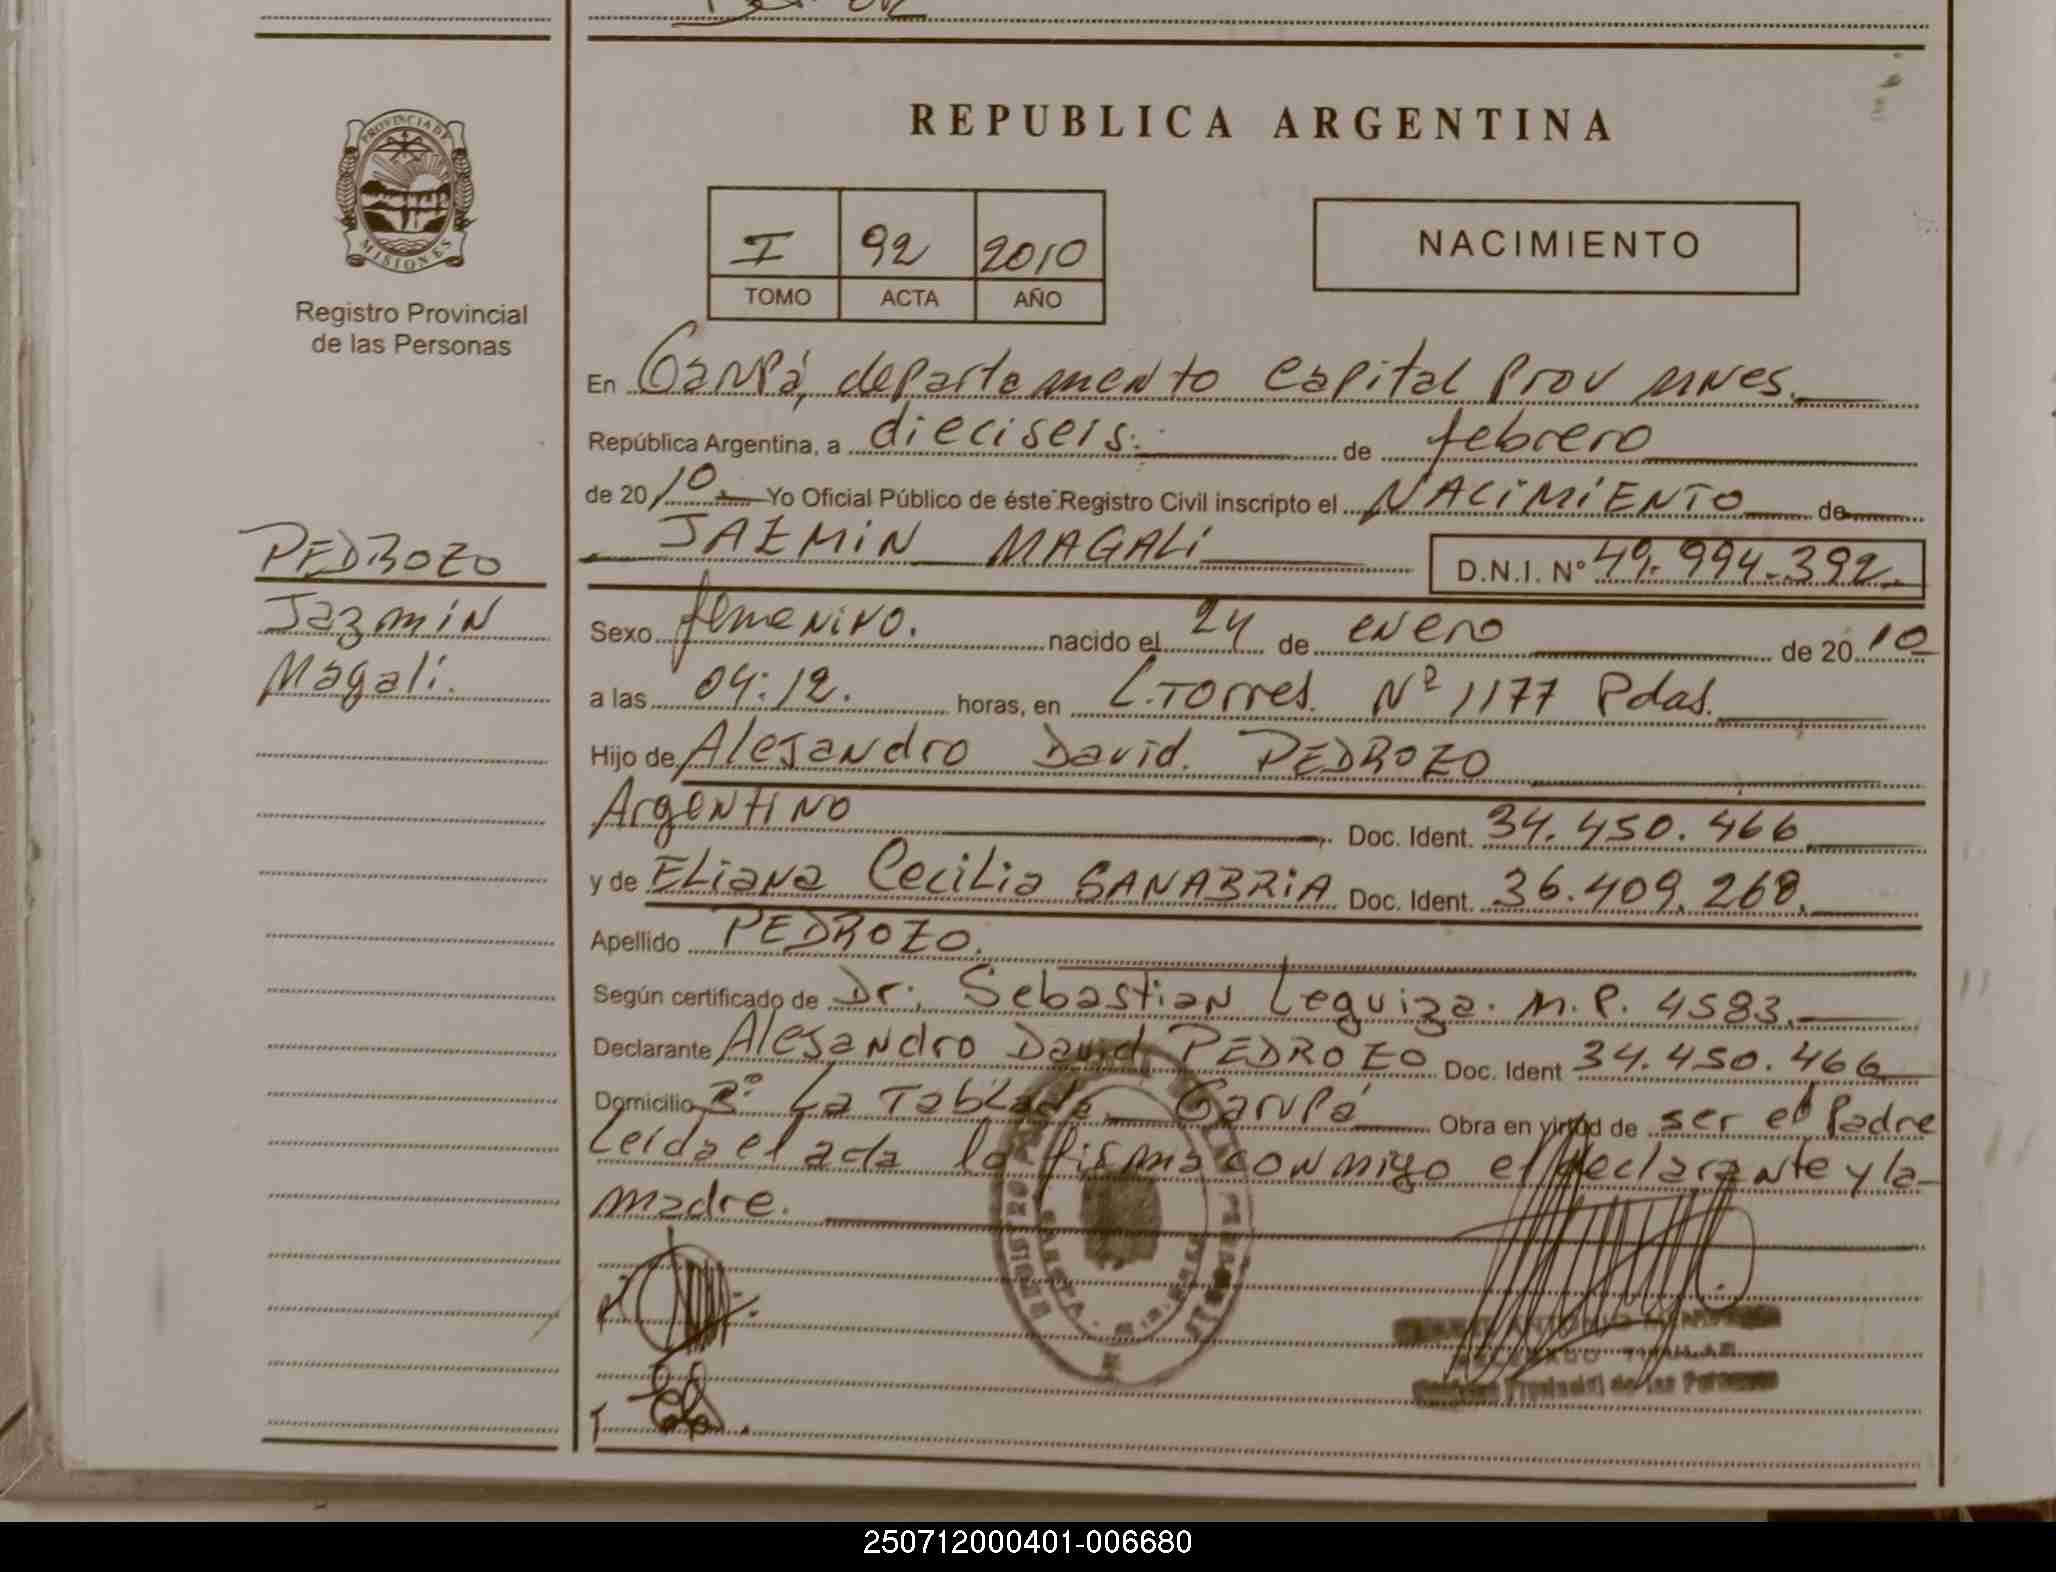 REPUBLICA ARGENTINA
PROVINCIA DE
MISIONES
Registro Provincial
de las Personas
I 92 2010
TOMO ACTA AÑO
NACIMIENTO
En Garupá, departamento Capital Prov Mnes.
República Argentina, a dieciseis. de febrero
de 2010 Yo Oficial Público de éste Registro Civil inscripto el NACIMIENTO de
JAZMIN MAGALI D.N.I. Nº 49.994.392
PEDROZO
Jazmin
Magali.
Sexo femenino. nacido el 24 de enero de 2010
a las 04:12. horas, en L. Torres. Nº 1177 Pdas.
Hijo de Alejandro David. PEDROZO
Argentino Doc. Ident. 34.450.466
y de Eliana Cecilia SANABRIA Doc. Ident. 36.409.268.
Apellido PEDROZO.
Según certificado de Dr: Sebastian Leguiza. M.P. 4583.
Declarante Alejandro David PEDROZO Doc. Ident 34.450.466
Domicilio Bº La Tablada Garupá Obra en virtud de ser el Padre
Leída el acta la firma conmigo el declarante y la
madre.
TITULAR
Provincial de las Personas
250712000401-006680